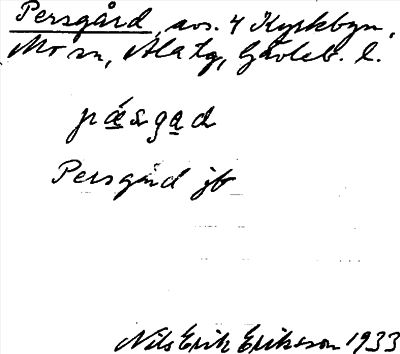 Persgård, avs. 4 Kyrkbyn,
Mo sn, Ala tg, Gävleb. l.
pǽ̱sga̱d
Persgård jb
Nils Erik Eriksson 1933